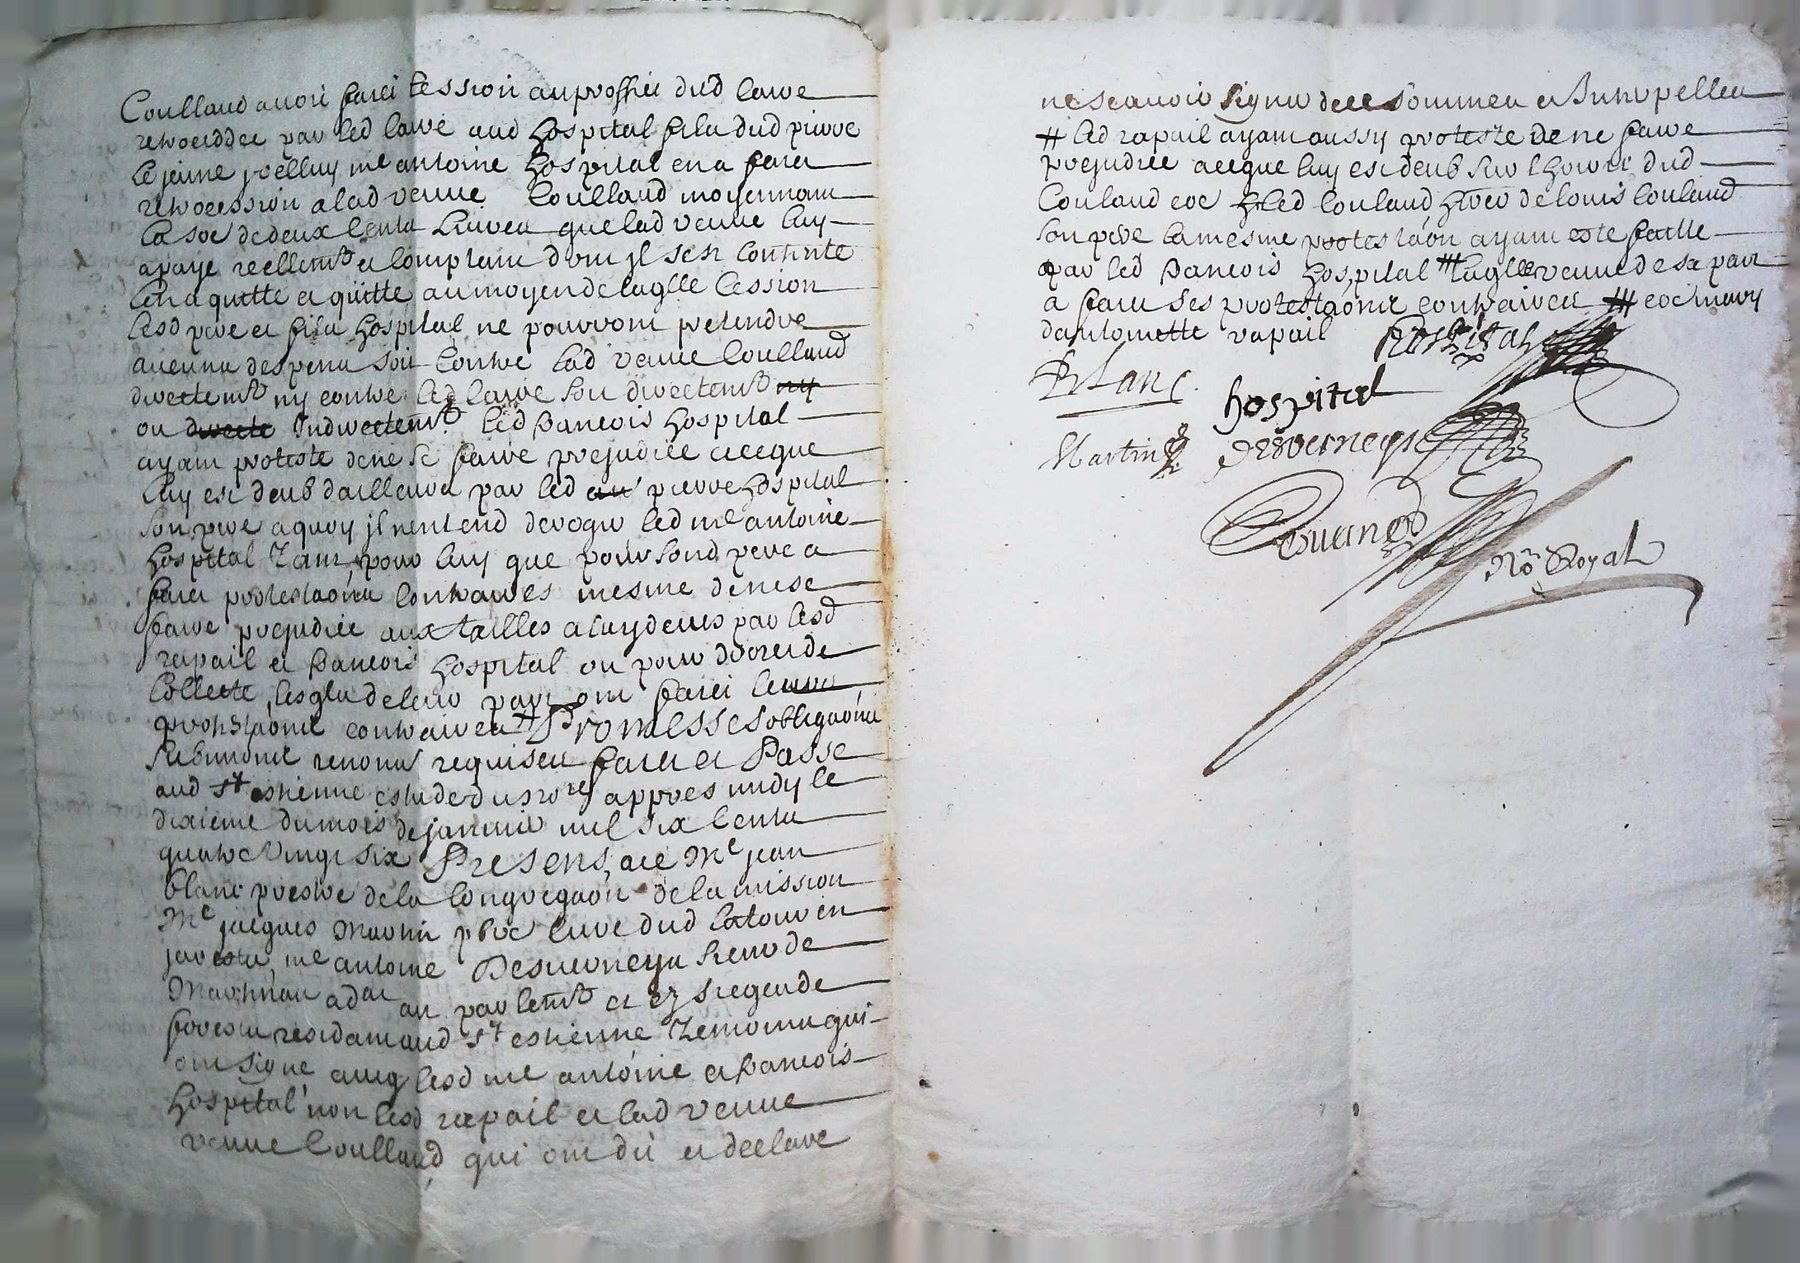 Coulland avoit faict cession au proffict dud Carre
retrocedder par led Carre aud hospital fils dud pierre
le jeune icelluy me antoine hospital en a faict
retrocession a lad vefve Coulland moyennant
la soe de deux Centz Livres que lad vefve luy
a payé reellemt et Comptant dont jl s'est Contenté
Len a quitté et quitte au moyen de laqlle Cession
lesd pere et filz hospital ne pourront pretendre
aucuns despens soit Contre lad vefve Coulland
directemt ny contre led Carre soit directemt ny
ou directe Indirectemt led francois hospital
ayant protesté de ne se faire prejudice a ce que
luy est deub dailleurs par led pierre hospital
son pere a quoy jl n'entend deroger led me antoine
hospital Tant pour luy que pour sond pere a
faict protestaons Contraires mesme de ne se
faire prejudice aux tailles a luy deues par lesd
rapail et francois hospital ou pour droict de
Collecte lesqls de leur part ont faict leurs
protestaons contraires # Promesses obligaons
renons requises faict et Passé
aud St estienne estude du nore appres midy le
dixieme du mois de janvier mil six Centz
quatre Vingt six Presens, a ce Me jean
blanc prestre de la Congregaon de la mission
Me jacques Martin pbre curé dud latour en
jarestz, me antoine Desverneys sieur de
adat au parlemt et ez sieges de
forestz residant aud St estienne Temoins qui
ont signé avecq lesd me antoine et francois
hospital non lesd rapail et lad vefve
vefve Coulland qui ont dit et declaré
ne scavoir signer de ce sommes et Interpelles
# led rapail ayant aussy protesté de ne faire
prejudice a ce que luy est deub sur l'hoirie dud
Couland et led Couland here de louis Couland
son pere la mesme protestaon ayant esté faitte
par led francois hospital # laqlle vefve de sa part
a faict ses protestaons contraires # et mary
d'antoinette rapail hospital
Blanc
hospital
Martin Desverneys
Nore Royal